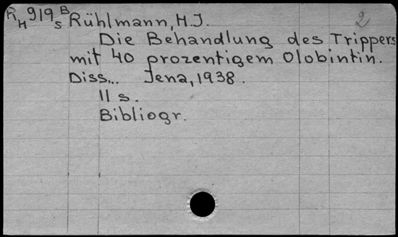 RH919 B S Rühlmann, H.J. 2
Die Behandlung des Trippers
mit 40 prozentigem Olobintin.
Diss... Jena, 1938.
11 s.
Bibliogr.